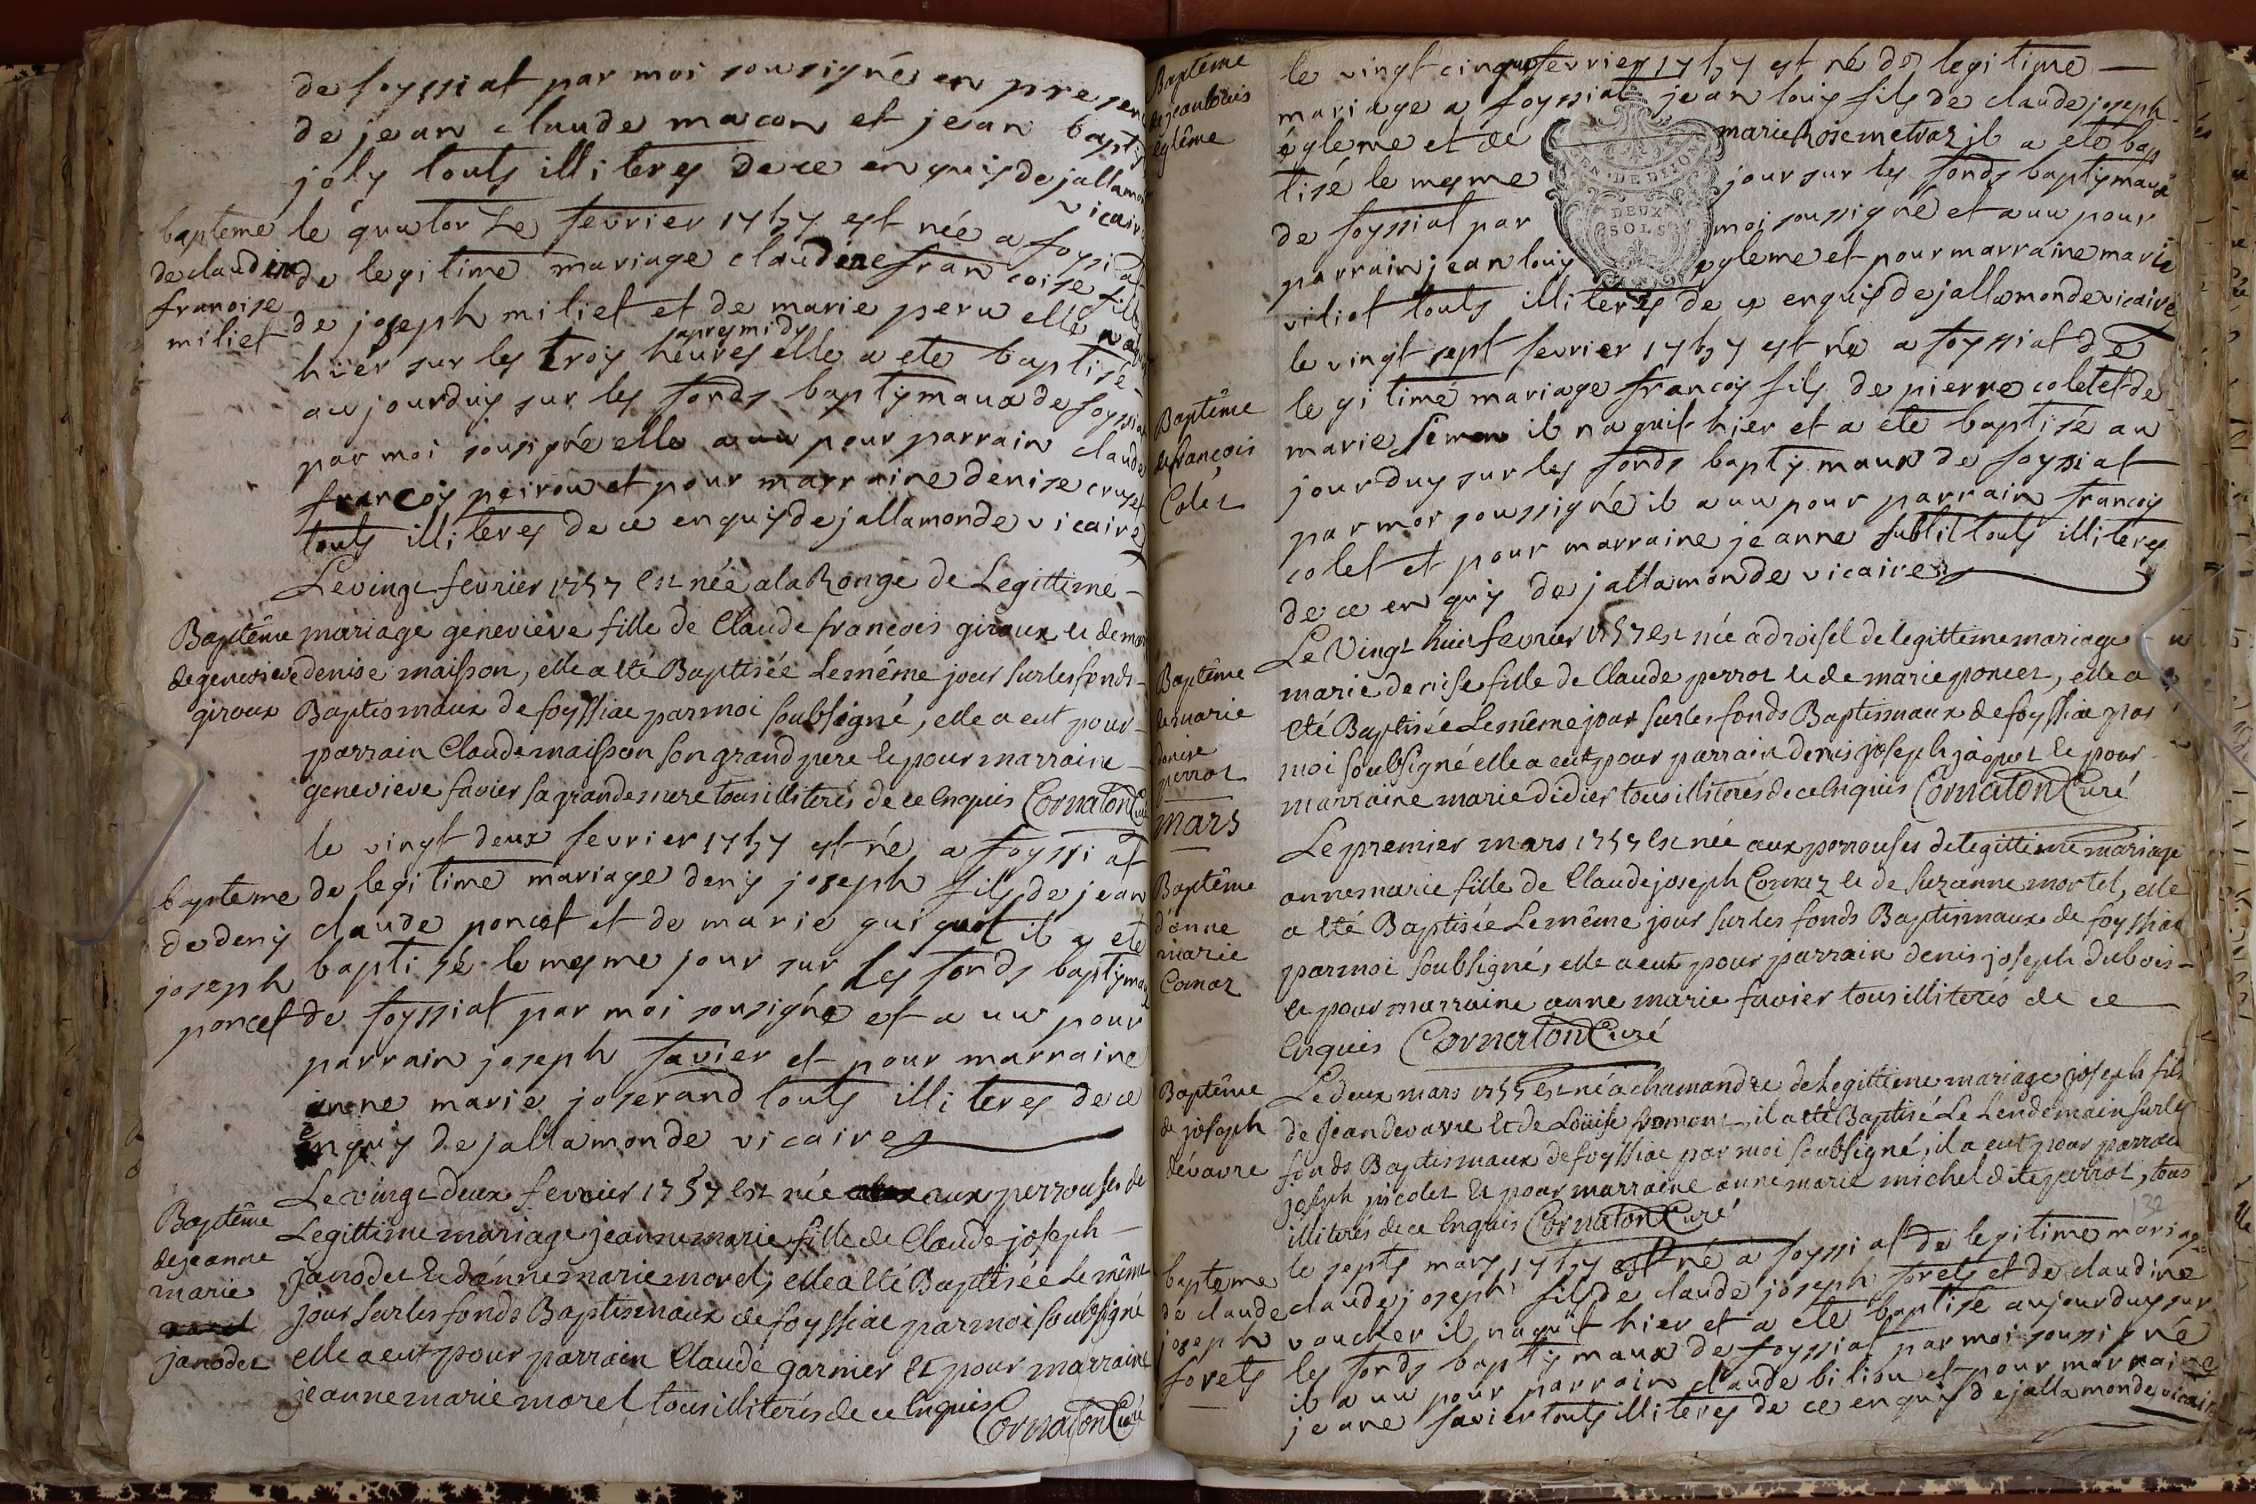 de foyssiat par moi sousigné en presen
de jean claude macon et jean baptis
joly touts illiteres de ce enquis dejallamon
vicaire
bapteme
de claudine
francoise
miliet
le quatorze fevrier 1757 est née a foyssiat
de legitime mariage claudine francoise fille
de joseph miliet et de marie peru elle na
apres midy
hïer sur les trois heures elle a ete baptisé
aujourduy sur les fonds baptismaux de foyssiat
par moi sousigné elle a uu pour parrain claude
francois peirou et pour marraine denise cruset
touts illiteres de ce enquis dejallamonde vicaire
Le vingt fevrier 1757 est née a la Ronge de Legittime
Baptême
de genevieve
giroux
mariage genevieve fille de Claude françois giroux et de marie
denise maisson, elle a eté Baptisée le même jour sur les fonds
Baptismaux de foyssiat par moi soubsigné, elle a eut pour
parrain Claude maisson son grand pere et pour marraine
genevieve favier sa grande mere tous illiterés de ce Enquis Cornaton Curé
le vingt deux fevrier 1757 est né a foyssiat
bapteme
de denis
joseph
poncet
de legitime mariage denis joseph fils de jean
claude poncet et de marie guiguot il a eté
baptisé le mesme jour sur les fonds baptismaux
de foyssiat par moi sousigné et a uu pour
parrain joseph favier et pour marraine
anne marie joserand touts illiteres de ce
enquis dejallamonde vicaire
Le vingt deux fevrier 1757 est née aux perrouses de
Baptême
de jeanne
marie
janodet
Legittime mariage jeanne marie fille de Claude joseph
janodet et d'anne marie morel, elle a eté Baptisée le même
jour sur les fonds Baptismaux de foyssiat par moi soubsigné
elle a eut pour parrain Claude garnier et pour marraine
jeanne marie morel tous illiterés de ce Enquis
Cornaton Curé
Baptême
de jean louis
églême
le vingt cinq fevrier 1757 est né de legitime
mariage a foyssiat jean louis fils de claude joseph
égleme et de marie Rose metraz il a eté bap
tisé le mesme jour sur les fonds baptismaux
de foyssiat par moi soussigné et a uu pour
parrain jean louis egleme et pour marraine marie
viliot touts illiteres de ce enquis dejallamonde vicaire
GEN. DE DIJON
DEUX
SOLS
Baptême
de françois
Colet
le vingt sept fevrier 1757 est né a foyssiat de
legitime mariage francois fils de pierre colet et de
marie il naquit hier et a ete baptisé au
jourduy sur les fonds baptismaux de foyssiat
par moi soussigné il a uu pour parrain francois
colet et pour marraine jeanne subtil touts illiteres
de ce enquis dejallamonde vicaire
Baptême
de marie
denise
perrot
Le Vingt huit fevrier 1757 est née a droisel de legittime mariage
marie denise fille de Claude perrot et de marie poncet, elle a
eté Baptisée le même jour sur les fonds Baptismaux de foyssiat par
moi soubsigné elle a eut pour parrain denis joseph jaquet et pour
marraine marie didier tous illiterés de ce Enquis Cornaton Curé
mars
Baptême
d'anne
marie
Cornaz
Le premier mars 1757 est née aux perrouses de legittime mariage
anne marie fille de Claude joseph Cornaz et de Suzanne mortel, elle
a eté Baptisée Le même jour sur les fonds Baptismaux de foyssiat
par moi soubsigné, elle a eut pour parrain denis joseph dubois
et pour marraine anne marie favier tous illiterés de ce
Enquis Cornaton Curé
Baptême
de joseph
dévavre
Le deux mars 1757 est né a chamandre de Legittime mariage joseph fils
de jean devavre et de Loüise romont, il a eté Baptisé Le Lendemain sur les
fonds Baptismaux de foyssiat par moi soubsigné, il a eut pour parrain
joseph picolet et pour marraine anne marie michel dite perrot, tous
illiterés de ce Enquis Cornaton Curé
132
bapteme
de claude
joseph
forets
le septs mars 1757 est né a foyssiat de legitime mariage
claude joseph fils de claude joseph forets et de claudine
voucher il naquit hier et a eté baptisé aujourduy sur
les fonds baptismaux de foyssiat par moi soussigné
il a uu pour parrain claude bilion et pour marraine
jeanne favier touts illiteres de ce enquis dejallamonde vicaire